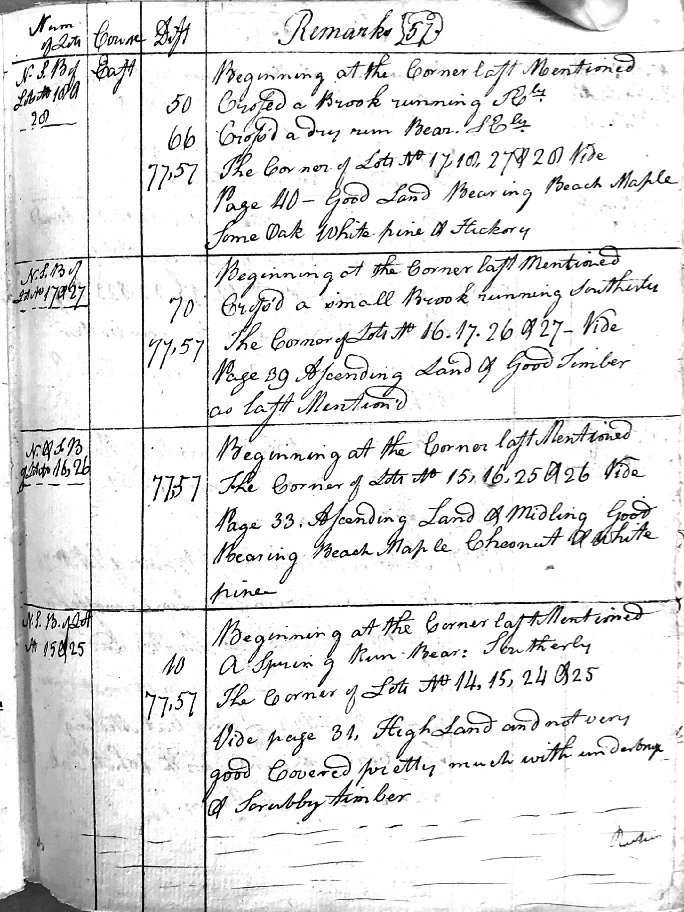 Num of Lots Course Dist Remarks [57]
N. S. B of East Beginning at the Corner last Mentioned
Lots No 18 &
28
50 Crossed a Brook running SEly
66 Cross'd a dry run Bear. SEly
77,57 The Corner of Lots No 17, 18, 27 & 28 Vide
Page 40 - Good Land Bearing Beach Maple
Some Oak White pine & Hickory
N. S. B of Beginning at the Corner last Mentioned
Lots No 17 & 27
70 Cross'd a small Brook running Southerly
77,57 The Corner of Lots No 16. 17. 26 & 27 - Vide
Page 39 Ascending Land & Good Timber
as last Mention'd
N. & S. B Beginning at the Corner last Mentioned
of Lots No 16, 26
77,57 The Corner of Lots No 15, 16, 25 & 26 Vide
Page 33. Ascending Land & Midling Good
Bearing Beach Maple Chesnut & White
pine
N. S. B. of Lots Beginning at the Corner last Mentioned
No 15 & 25
10 A Spring Run Bear: Southerly
77,57 The Corner of Lots No 14, 15, 24 & 25
Vide page 31, High Land and not very
good Covered pretty much with
& Scrubby timber